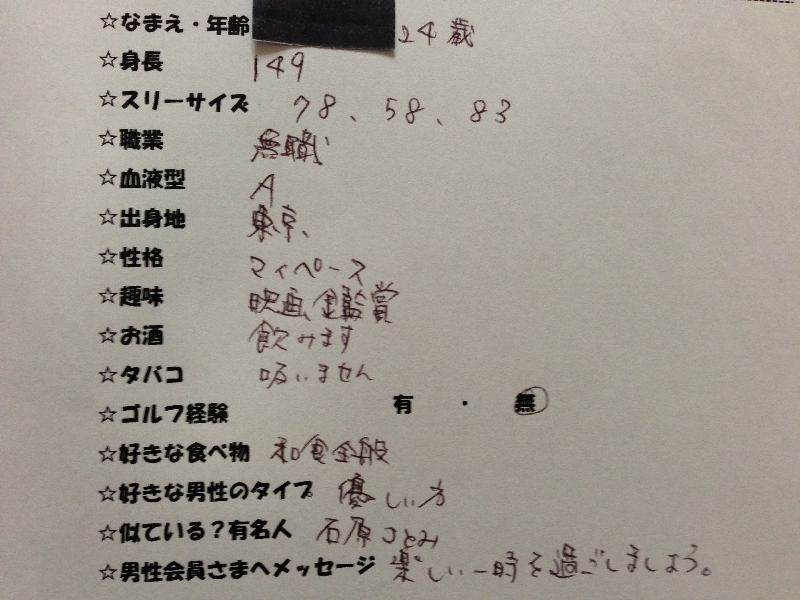 ☆なまえ・年齢 24歳
☆身長 149
☆スリーサイズ 78、58、83
☆職業 無職
☆血液型 A
☆出身地 東京、
☆性格 マイペース
☆趣味 映画鑑賞
☆お酒 飲みます
☆タバコ 吸いません
☆ゴルフ経験 有・無
☆好きな食べ物 和食全般
☆好きな男性のタイプ 優しい方
☆似ている？有名人 石原さとみ
☆男性会員さまへメッセージ 楽しい一時を過ごしましょう。